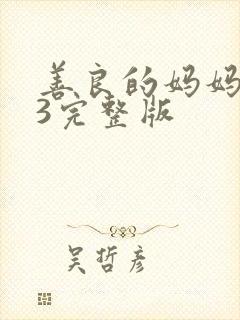 善良的妈妈
3完整版
吴哲彦